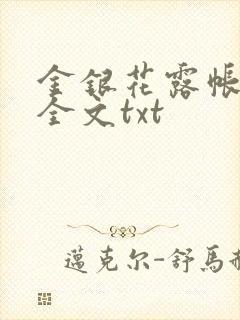 金银花露帐
全文txt
邁克尔-舒馬赫